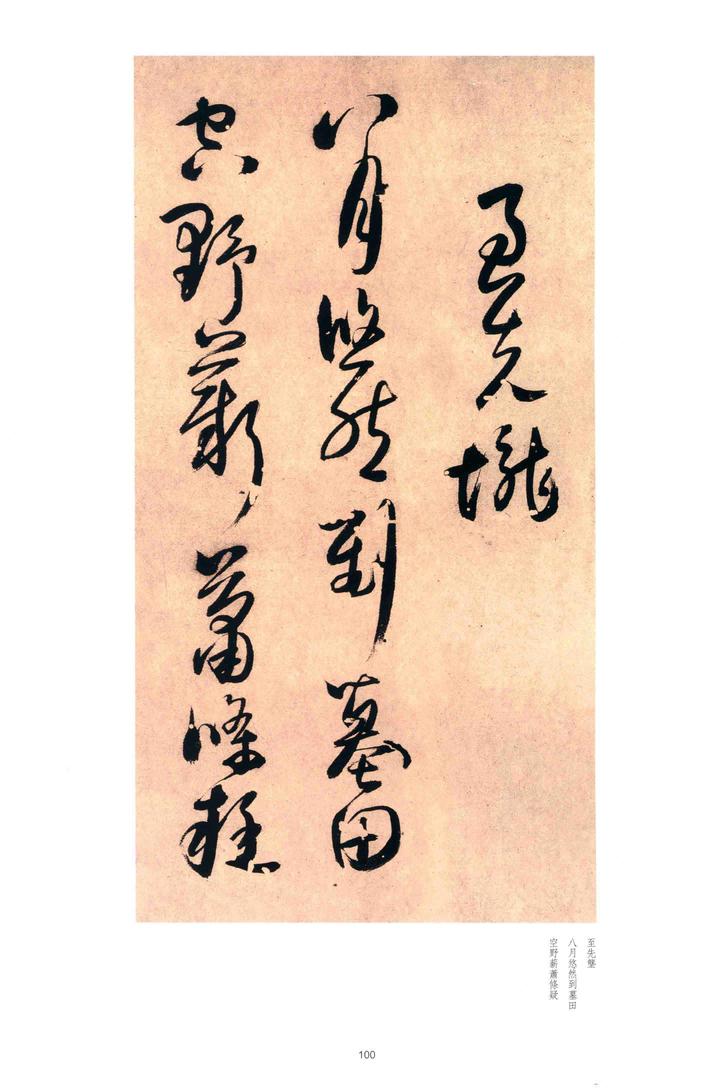 至先壠
八月悠然到墓田
空野薪蕭條疑
至先壟
八月悠然到墓田
空野薪蕭條疑
100